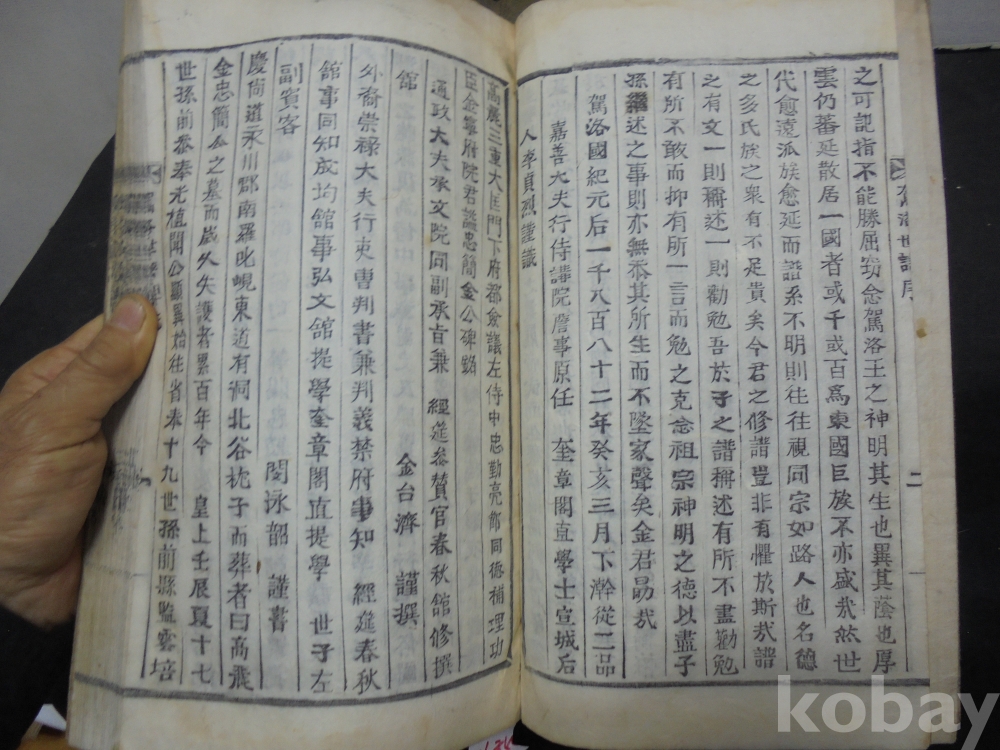 之可認指不能勝屈窃念駕洛王之神明其生也異其蔭也厚
雲仍蕃延散居一國者或千或百爲東國巨族不亦盛哉然世
代愈遠派族愈延而譜系不明則往往視同宗如路人也名德
之多氏族之衆有不足貴矣今君之修譜豈非有懼於斯哉譜
之有文一則稱述一則勸勉吾於子之譜稱述有所不盡勸勉
有所不敢而抑有所一言而勉之克念祖宗神明之德以盡子
孫繼述之事則亦無忝其所生而不墜家聲矣金君勗哉
駕洛國紀元后一千八百八十二年癸亥三月下澣從二品
嘉善大夫行侍講院詹事原任 奎章閣直學士宣城后
人李貞烈謹識
高麗三重大匡門下府都僉議左侍中忠勤亮節同德補理功
臣金寧府院君諡忠簡金公碑銘
通政大夫承文院同副承旨兼 經筵參贊官春秋館修撰
館 金台濟 謹撰
外裔崇祿大夫行吏曹判書兼判義禁府事知 經筵春秋
館事同知成均館事弘文館提學奎章閣直提學 世子左
副賓客 閔泳韶 謹書
慶尙道永川郡南羅叱峴東道有洞北谷枕子而葬者曰高麗
金忠簡公之墓而歲久失護者累百年今 皇上壬辰夏十七
世孫前參奉光植聞公顯異始往省奉十九世孫前縣監雲培
二
kobay